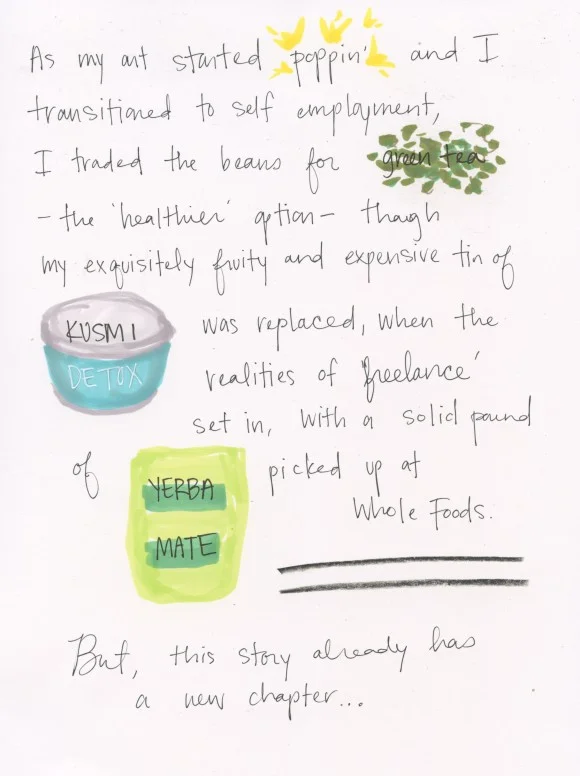 As my art started 'poppin' and I
transitioned to self employment,
I traded the beans for green tea
-the 'healthier' option- though
my exquisitely fruity and expensive tin of
KUSMI DETOX was replaced, when the
realities of 'freelance'
set in, with a solid pound
of YERBA MATE picked up at
Whole Foods.
But, this story already has
a new chapter...